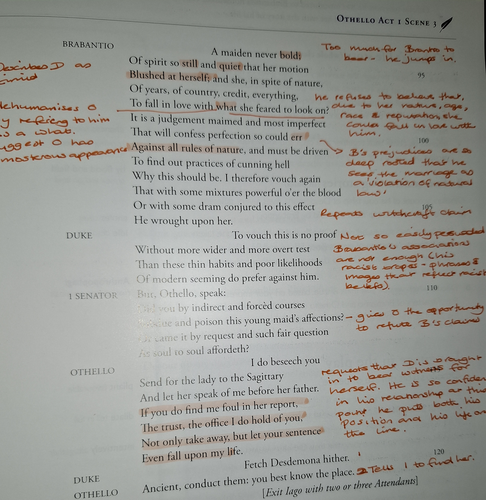 OTHELLO ACT 1 SCENE 3
BRABANTIO
A maiden never bold;
Of spirit so still and quiet that her motion
Blushed at herself; and she, in spite of nature,
Of years, of country, credit, everything,
To fall in love with what she feared to look on?
It is a judgement maimed and most imperfect
That will confess perfection so could err
Against all rules of nature, and must be driven
To find out practices of cunning hell
Why this should be. I therefore vouch again
That with some mixtures powerful o'er the blood
Or with some dram conjured to this effect
He wrought upon her.
95
100
105
Too much for Brabantio to
bear - he jumps in.
he refuses to believe that,
due to her nature, age,
race & reputation she
could fall in love with
him.
B's prejudices are so
deep rooted that he
sees the marriage as
a violation of natural
law.
Repeats witchcraft claim
D as
timid
dehumanises O
by refering to him
as a what.
suggest O has
monstrous appearance
DUKE
To vouch this is no proof
Without more wider and more overt test
Than these thin habits and poor likelihoods
Of modern seeming do prefer against him.
Not so easily persuaded
Brabantio's
are not enough (his
racist tropes - phrases &
images that reflect racist
beliefs).
110
1 SENATOR
But, Othello, speak:
you by indirect and forcèd courses
and poison this young maid's affections?
came it by request and such fair question
soul to soul affordeth?
- gives O the opportunity
to refute B's claims
OTHELLO
I do beseech you
Send for the lady to the Sagittary
And let her speak of me before her father.
If you do find me foul in her report,
The trust, the office I do hold of you,
Not only take away, but let your sentence
Even fall upon my life.
requests that D is brought
in to bear witness for
herself. He is so confident
in his relationship at this
point he puts both his
position and his life on
the line.
DUKE
Fetch Desdemona hither.
120
OTHELLO
Ancient, conduct them: you best know the place.
Tells I to find her.
[Exit Iago with two or three Attendants]